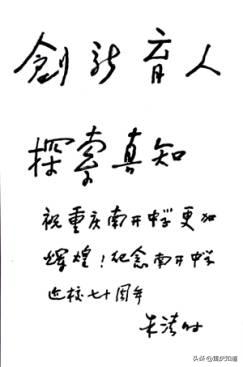 創新育人
探索真知
祝重庆南开中学更加
辉煌！纪念南开中学
建校七十周年
朱清时
头条@重庆知道